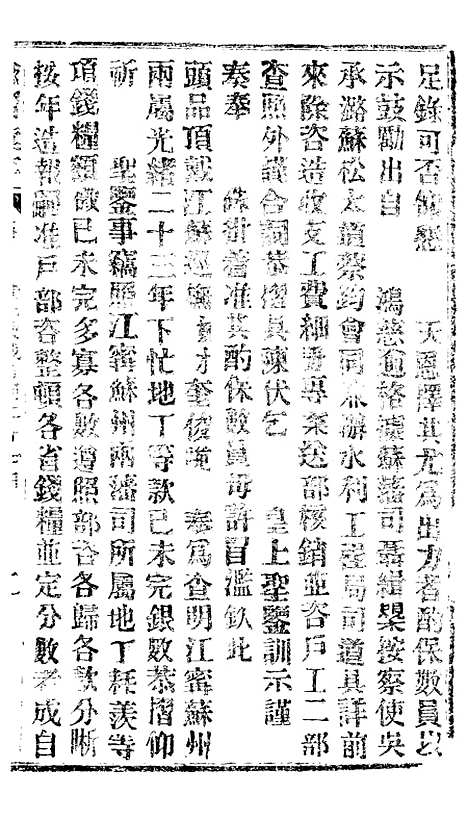 足錄可否 天恩擇其尤為出力者酌保數員以
示鼓勵出自 鴻慈逾格據蘇藩司聶緝槼按察使吳
承潞蘇松太道蔡鈞會同兼辦水利工程局司道具詳前
來除咨造收支工費細數專案送部核銷並咨戶工二部
查照外謹合詞恭摺具陳伏乞 皇上聖鑒訓示謹
奏奉 硃批著准其酌保數員毋許冒濫欽此
頭品頂戴江蘇巡撫 奎俊跪 奏為查明江寧蘇州
兩屬光緒二十三年下忙地丁等款已未完銀數恭摺仰
祈 聖鑒事竊照江寧蘇州兩藩司所屬地丁耗羨等
項錢糧額徵已未完多寡各數遵照部咨各歸各款分晰
按年造報嗣准戶部咨整頓各省錢糧並定分數考成自